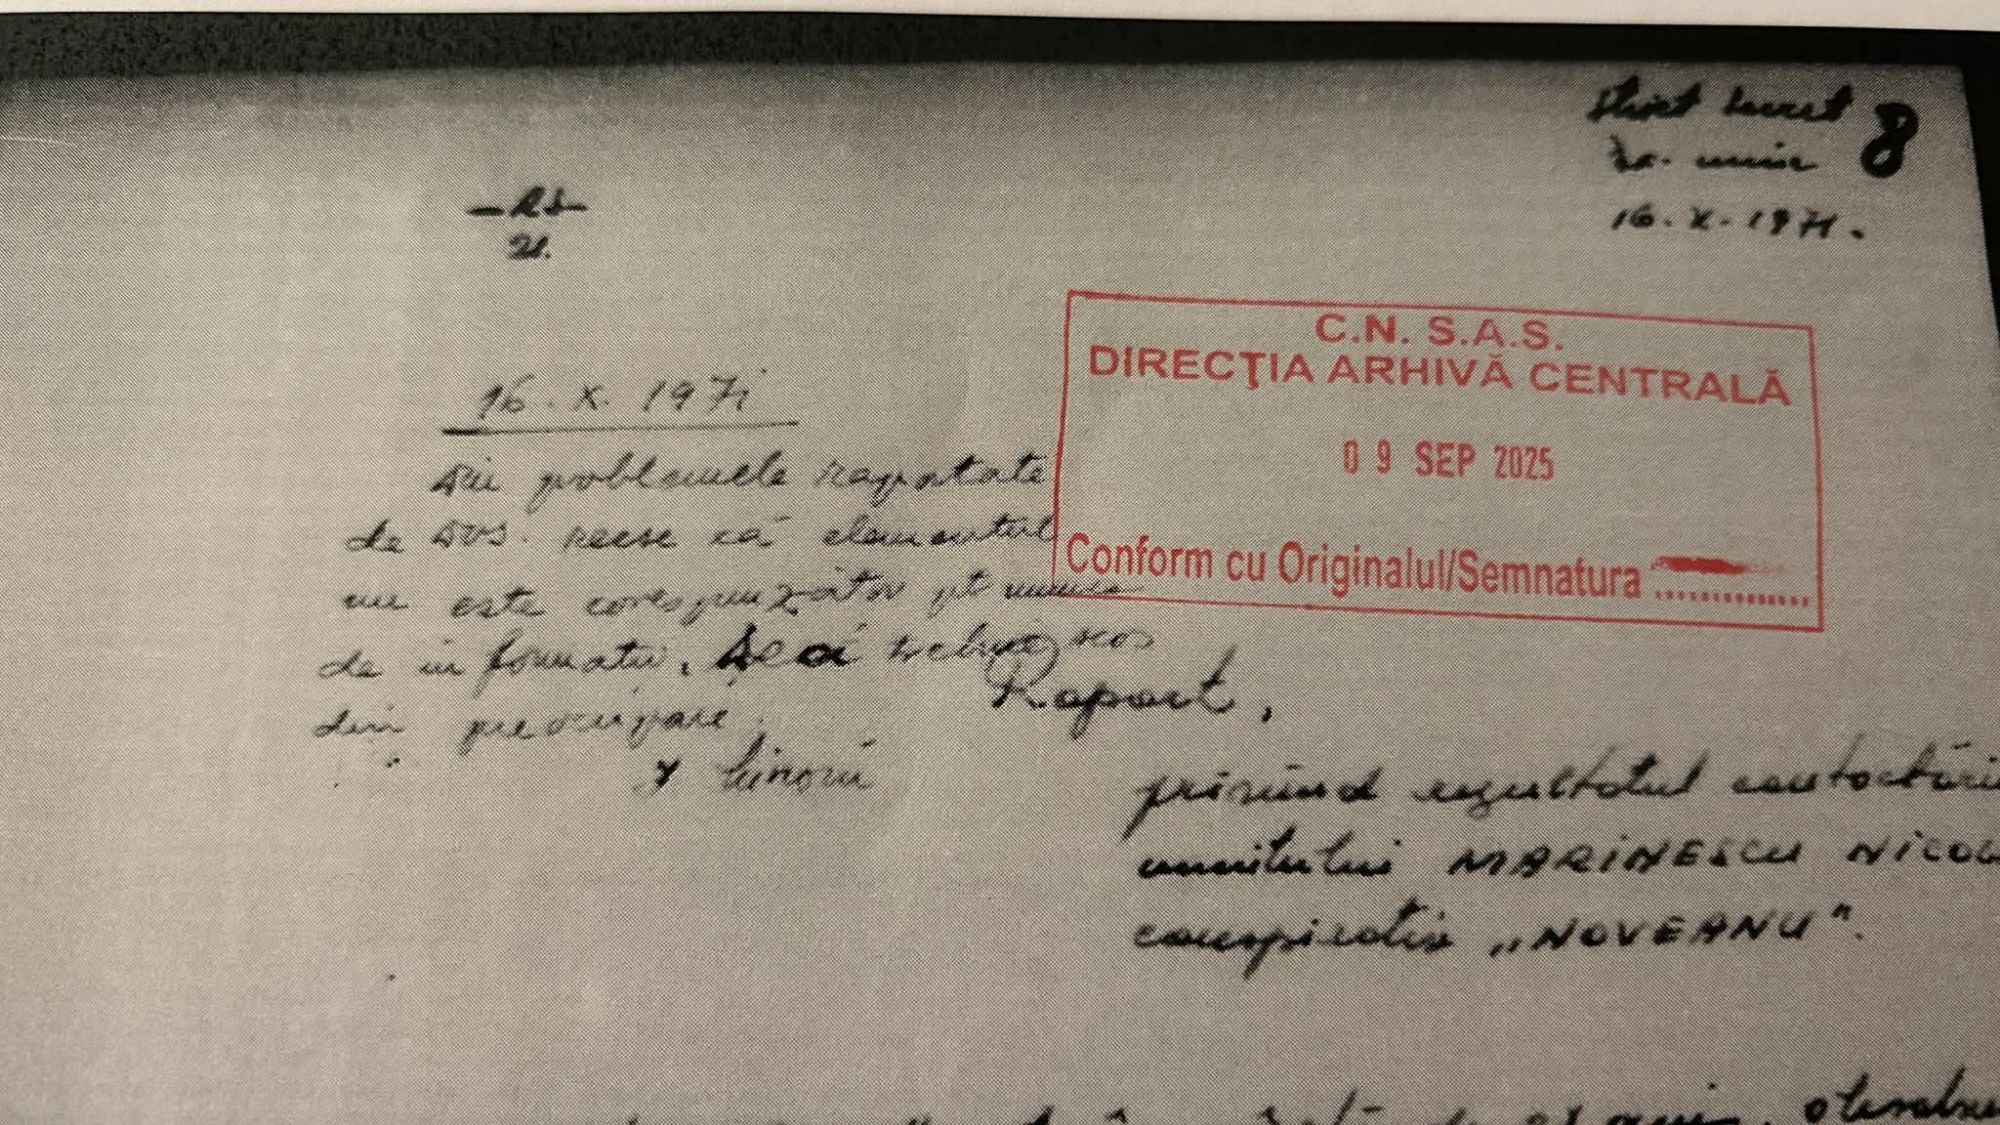 Strict secret
Ex. unic
8
16.X.1971.
21.
16.X.1971
C.N.S.A.S.
DIRECŢIA ARHIVĂ CENTRALĂ
09 SEP 2025
Conform cu Originalul/Semnatura ..............
Din problemele raportate
de Dvs. reese că elementul
nu este corespunzător pt munca
de informativ. Deci trebuie scos
din preocupare.
Raport,
privind rezultatul contactării
numitului MARINESCU NICOL
conspirativ „NOVEANU".